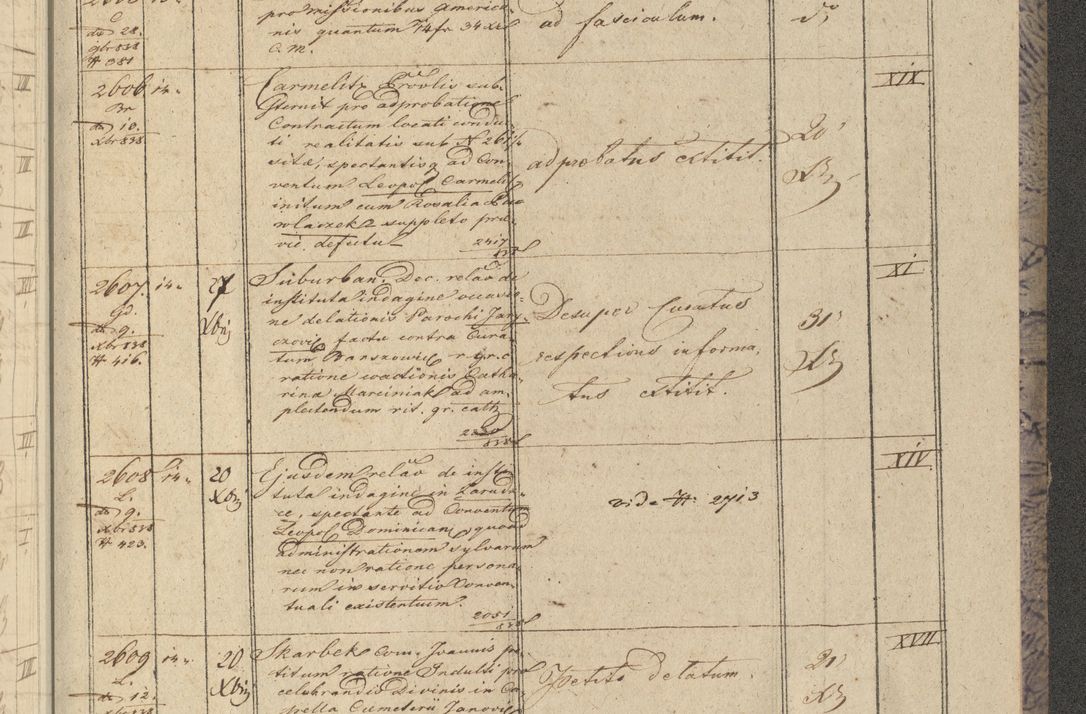 pro missionibus America-
nis quantum 74 fr 34 xr
C.M.
ad fasciculum.
dto 28.
9br 838
# 381
2606 14.
Br
dto 10.
Xbr 838
Carmelitæ Provlis sub-
sternit pro adprobatione
Contractum locati conduc-
ti realitatis sub N 261 ¾
sitæ, spectantis q ad Con-
ventum Leopol Carmelit
initum cum Rosalia
wlaczek suppleto præ-
vie defectu
2417
838
adprobatus extitit.
20
Xb
XIX
2607. 14.
G.
dto 9.
Xbr 838
# 416.
27
Xbris
Suburban. Dec. relaõ de
instituta indagine occasio-
ne delationis Parochi Jary-
czoviẽ factæ contra Cura-
tum Barszowiẽ r. gr. c.
ratione coactionis Catha-
rina Marciniak ad am-
plectendum rit. gr. cath
2320
838
Desuper Curatus
respectivus informa,
tus extitit.
31
Xb
XI
2608 14.
L.
dto 9.
Xbr 838
# 423.
20
Xbris
Ejusdem relaõ de insti-
tuta indagine in Zarudi-
ce, spectante ad Conventum
Leopol Dominican quoad
administrationem sylvarum
nec non ratione persona-
rum in servitio Conven-
tuali existentium.
2051
838
vide #: 2713
XIV
2609 14.
L.
dto 12.
Xbr 838
20
Xbris
Skarbek Com. Joannis pe-
titum ratione Indulti pro
celebrandis Divinis in Ca-
pella Cemeterii Janoviẽ
Petito delatum.
21
Xb
XVII